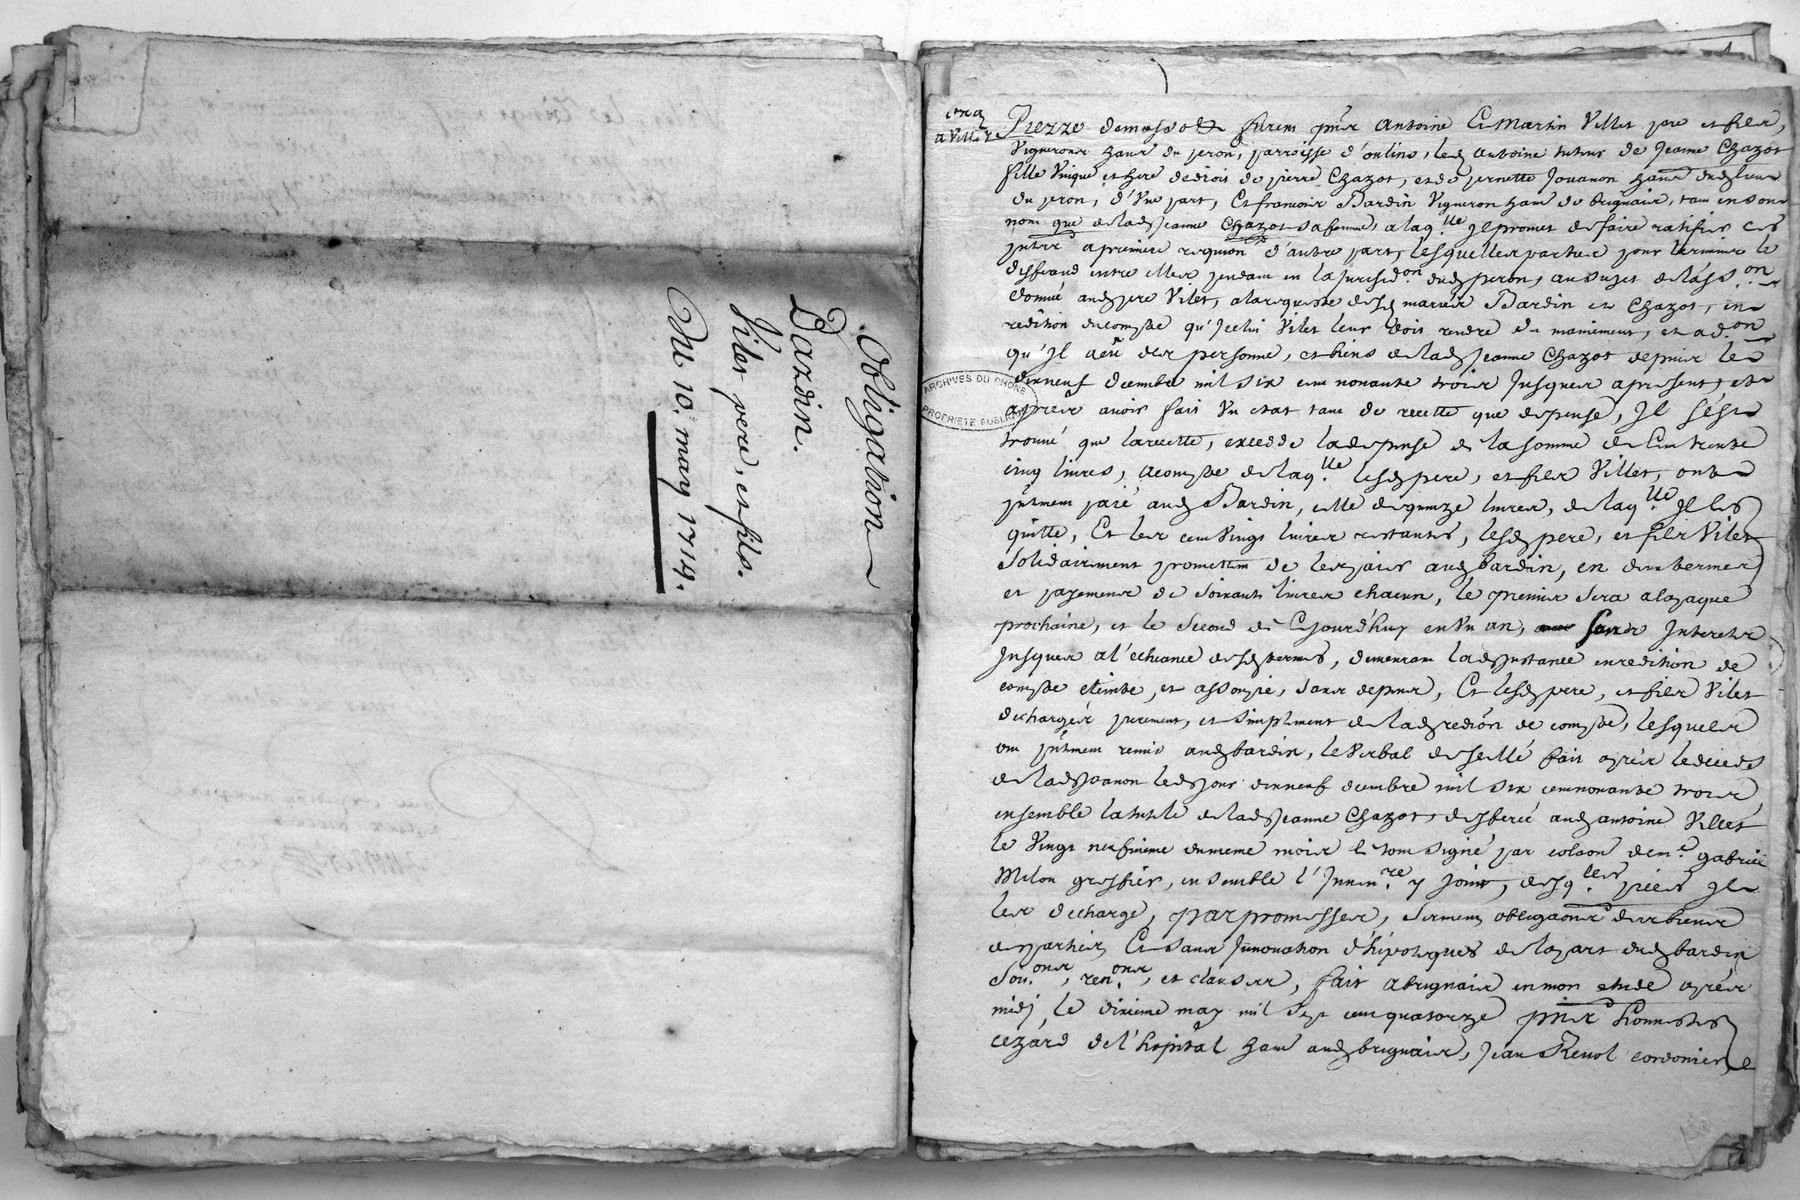 Obligation
Bardin.
Vilet pere, et fils.
Du 10.e may 1714.
ARCHIVES DU RHONE
PROPRIETE PUBLIQUE
a Villet
furent pnts Antoine Et Martin Villet pere et fils,
Vignerons du peron, parroisse d'oulins, led Antoine tuteur de Jeanne Chazot
fille Unique et de pierre Chazot, et de pernette Jouanon
du peron, d'Une part, Et francois Bardin Vigneron de brignais, tant en son
nom que de lad Jeanne Chazot sa femme, a laq.lle Il promet de faire ratifier ces
a premiere d'autre part, lesquelles parties pour terminer le
differand entre elles pendant en la Jurisd.on dud peron, au sujet de
donné aud pere Vilet, a la requeste desd mariés Bardin et Chazot, en
redition de compte qu'Icelui Vilet leur doit rendre du maniement, et
qu'Il a eu des personne, et biens de lad Jeanne Chazot depuis le
dixneuf decembre mil six cent nonante trois Jusques a present, et
apres avoir fait Un etat tant de recette que depense, Il s'est
trouvé que la recette, excedde la depense de la somme de Cent trente
cinq livres, a compte de laq.lle lesd pere, et fils Villet, ont
pntement paié aud Bardin, celle de quinze livres, de laq.lle Il les
quitte, Et les cent Vingt livres restantes, lesd pere, et fils Vilet
Solidairement promettent de les paier aud bardin, en deux termes
et payements de Soixante livres chacun, le premier sera a la paque
prochaine, et le second de Cejourd'huy en Un an, sans Interets
Jusques a l'echeance desd termes, demeurant lad Instance en redition de
compte eteinte, et assoupie, sans depens, Et lesd pere, et fils Vilet
dechargés purement, et simplement de lad redion de compte, lesquels
ont pntement remis aud bardin, le Verbal de scellé fait apres le deceds
de lad Joanon led jour dixneuf decembre mil six cent nonante trois,
ensemble la tutele de lad Jeanne Chazot, aud antoine Villet
le Vingt neufvieme du meme mois le tout signé par de m.e gabriel
Milon greffier, ensemble l'Inven.re y joint, desq.lles pieces Il
les decharge, par promesses, serment, obligaons des biens
Et sans Innovation d'hipoteques de la part dud bardin
Sou.ons, ren.ons, et clauses, fait a brignais en mon etude apres
midi, le dixieme may mil Sept cent quatorze pnts honnestes
cezard de l'hopital aud brignais, Jean Revol cordonier